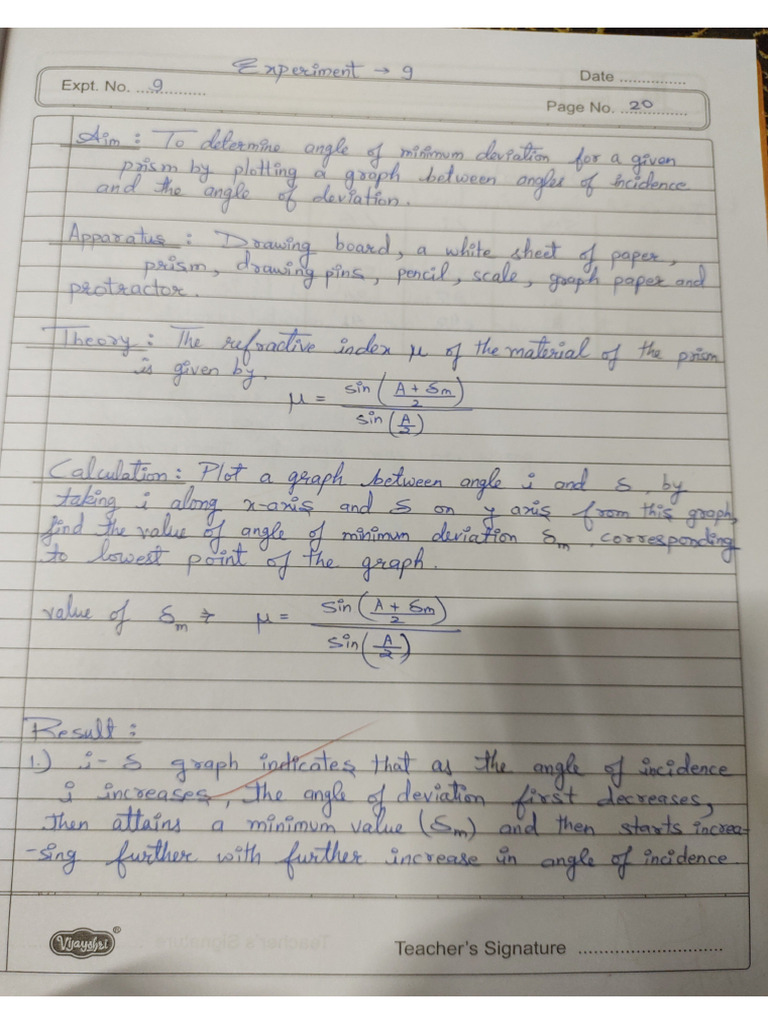 Experiment → 9
Expt. No. 9
Date
Page No. 20
Aim : To determine angle of minimum deviation for a given
prism by plotting a graph between angles of incidence
and the angle of deviation.
Apparatus : Drawing board, a white sheet of paper,
prism, drawing pins, pencil, scale, graph paper and
protractor.
Theory : The refractive index μ of the material of the prism
is given by.
μ = sin(A + δm / 2) / sin(A/2)
Calculation : Plot a graph between angle i and δ, by
taking i along x-axis and δ on y axis from this graph,
find the value of angle of minimun deviation δm, corresponding
to lowest point of the graph.
value of δm ⇒ μ = sin(A + δm / 2) / sin(A/2)
Result :
1.) i - δ graph indicates that as the angle of incidence
i increases, the angle of deviation first decreases,
then attains a minimum value (δm) and then starts increa-
-sing further with further increase in angle of incidence
Vijayshri®
Teacher's Signature